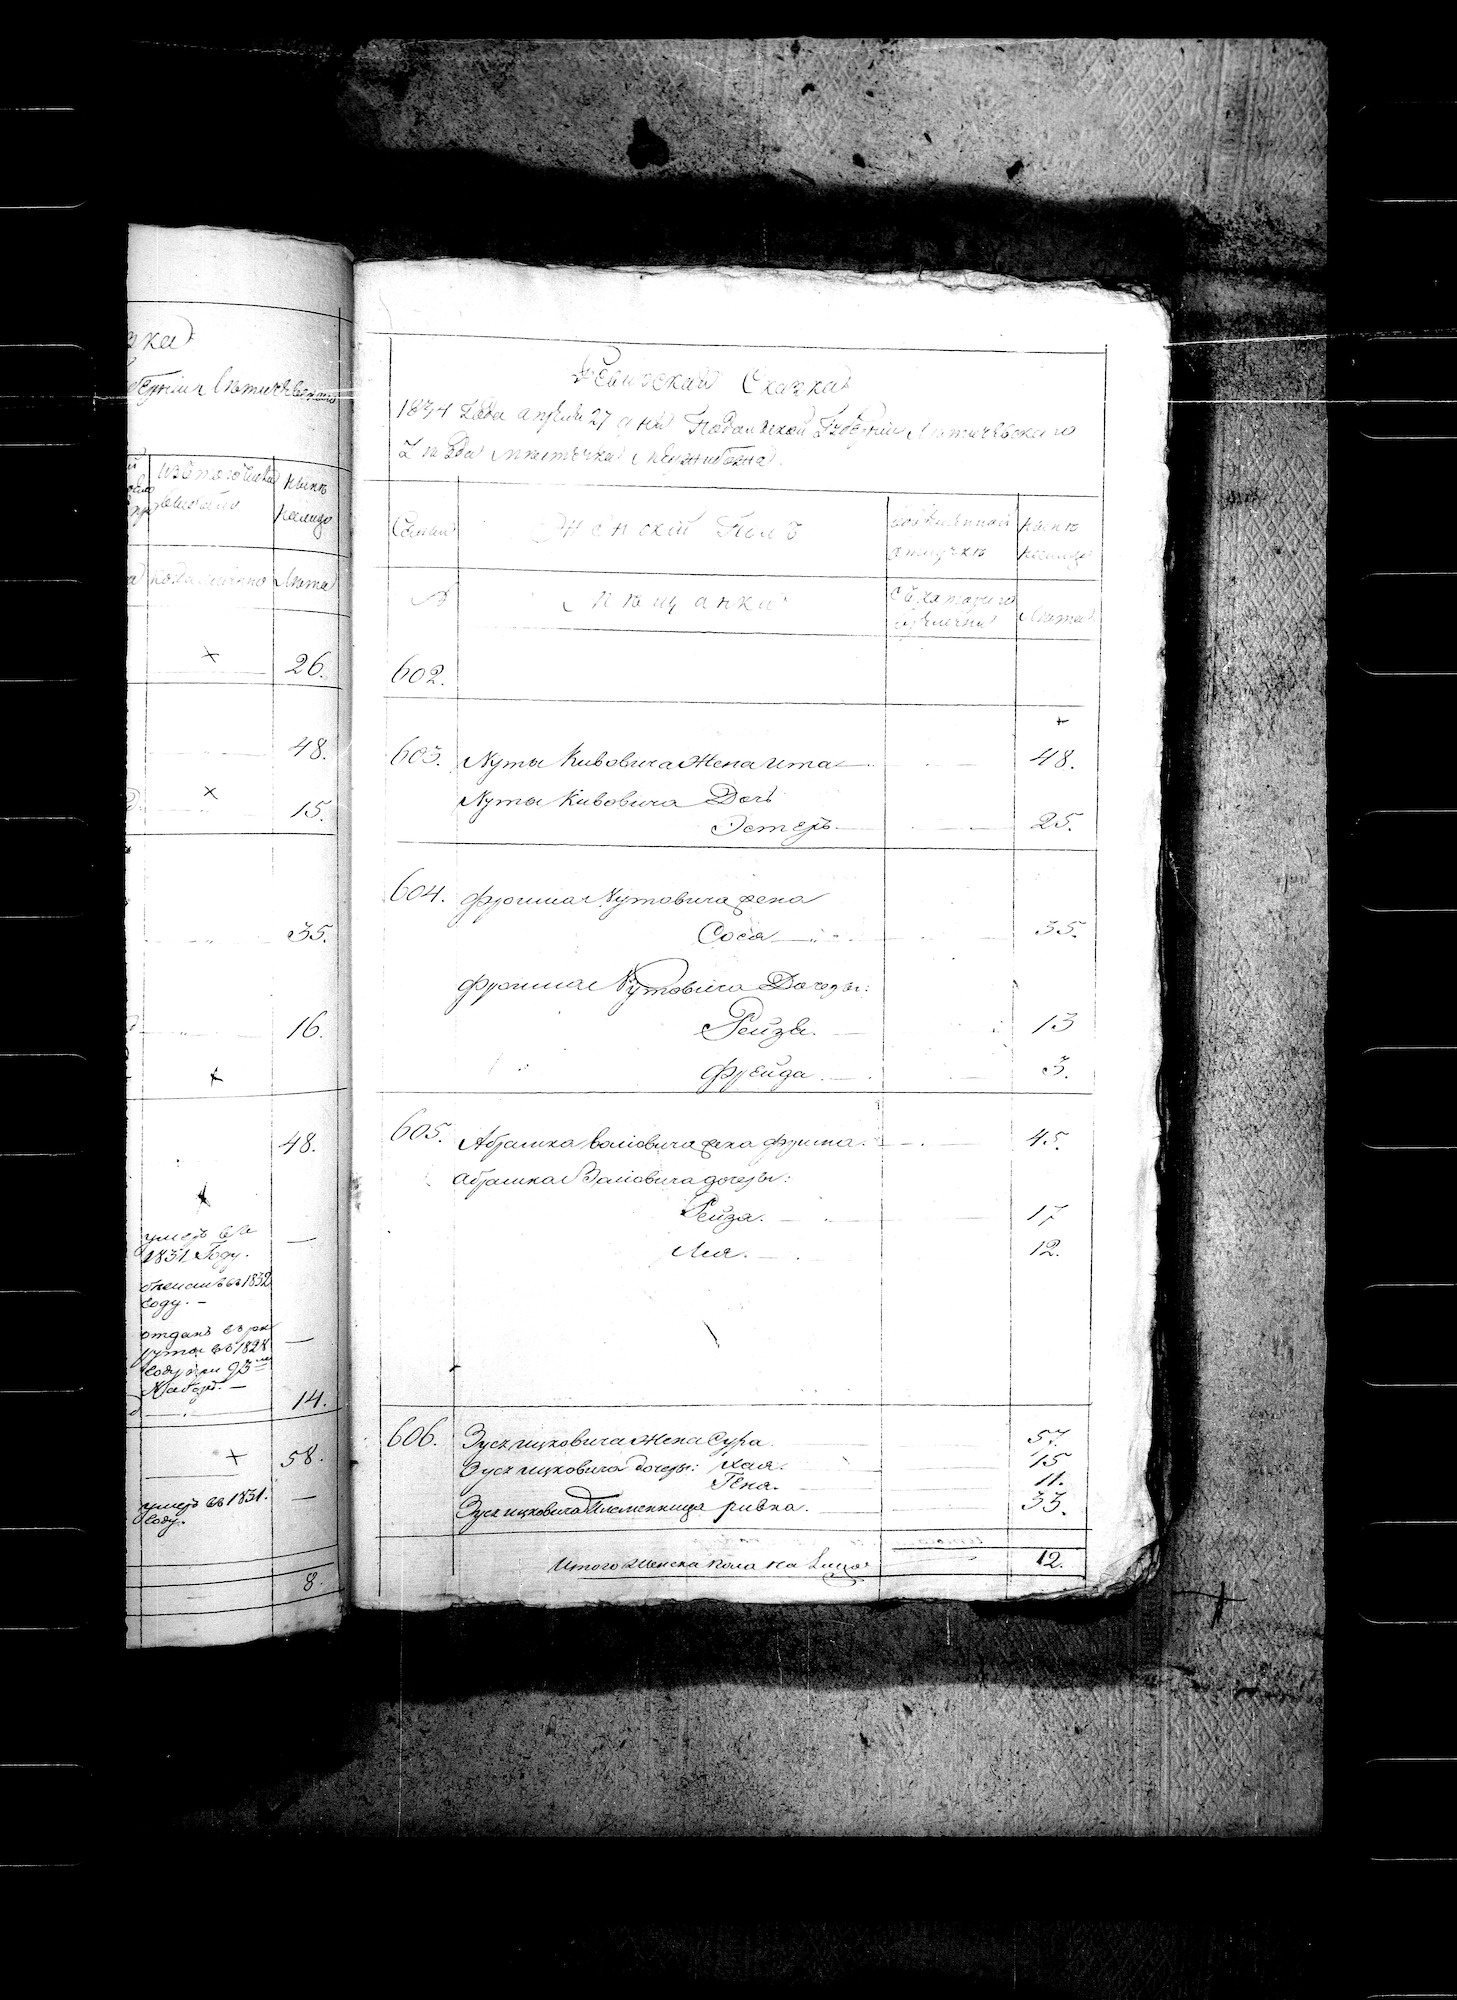 зка
Губерніи Летичевскаго
изъ того числа
выбыло
ныне
налицо
когда именно
Лета
26.
48.
15.
35.
16.
48.
умеръ въ
1831 Году.
въ 1832
году. –
отданъ въ рек
руты въ 1828
году при 93
Наборе. –
14.
58.
умеръ въ 1831.
году.
8.
Ревизская Сказка
1834 Года апреля 27 дня Подольской Губерніи Летичевскаго
Уезда Местечка Межибожа.
Семьи
Женскій Полъ
временной
отлучке
ныне
налицо
№
Мещанки
съ котораго
времени
Лета
602.
603. Нуты Кивовича Жена Ита 48.
Нуты Кивовича Дочь
Эстеръ 25.
604. Фроима Нутовича жена
Сося 35.
Фроима Нутовича Дочеры:
Рейзя. 13
Фрейда 3.
605. Абрамка Волиовича жена Фрима. 45.
Абрамка Волиовича дочеры:
Рейза. 17
Лея. 12.
606. Зуся Ицковича Жена Сура. 57.
Зуся Ицковича дочеры: Хая. 15
Гена. 11.
Зуся Ицковича Племенница Ривка. 33.
Итого Женска пола на Лицо 12.